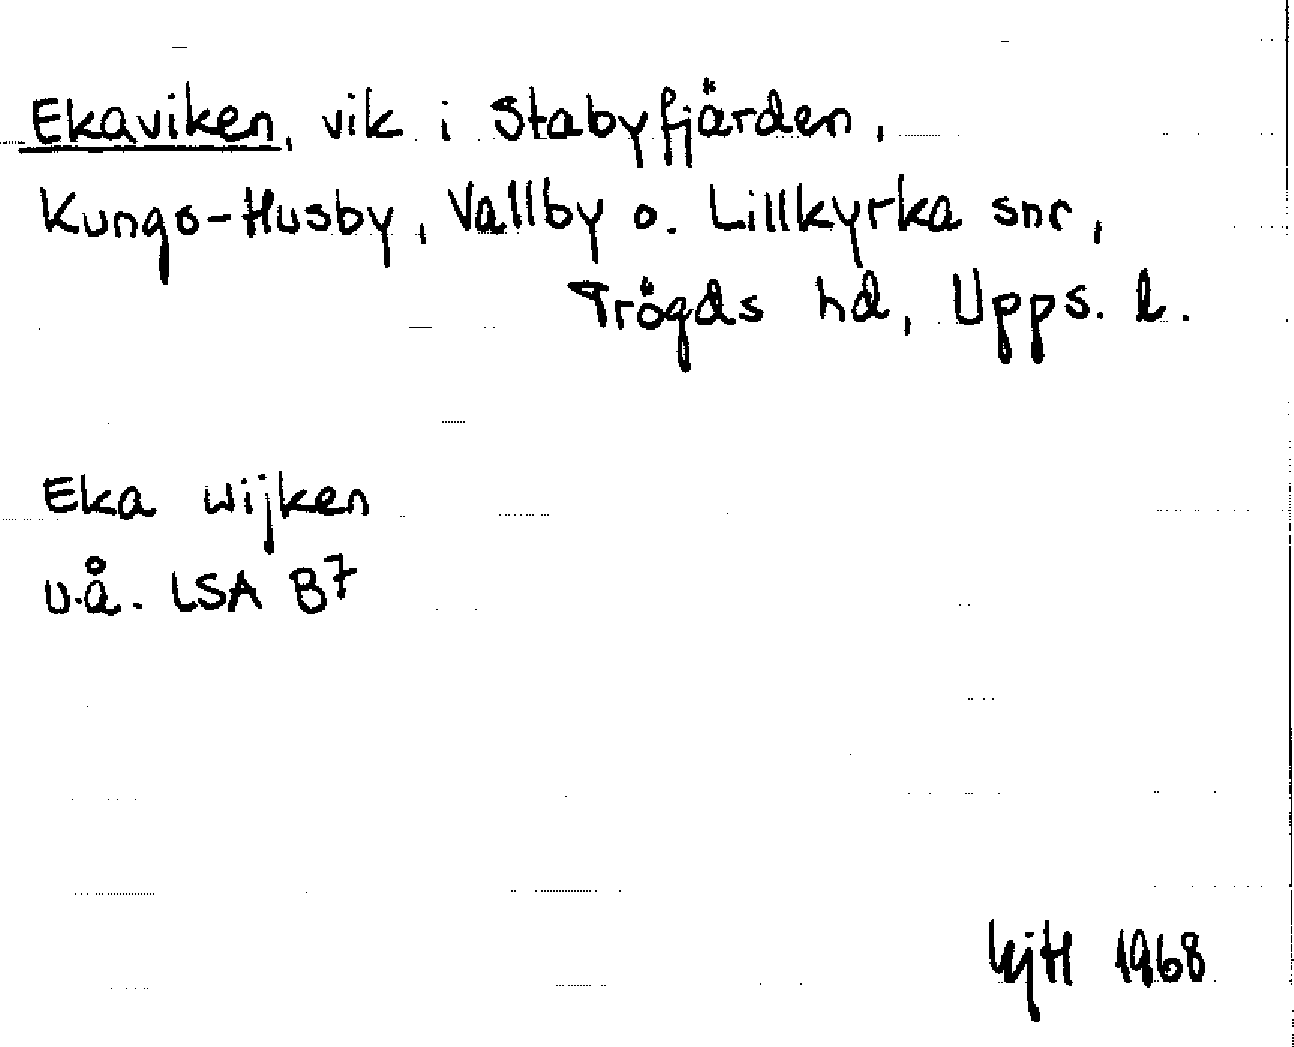 Ekaviken, vik i Stabyfjärden,
Kungs-Husby, Vallby o. Lillkyrka snr,
Trögds hd, Upps. l.
Eka wijken
u.å. LSA B7
1968